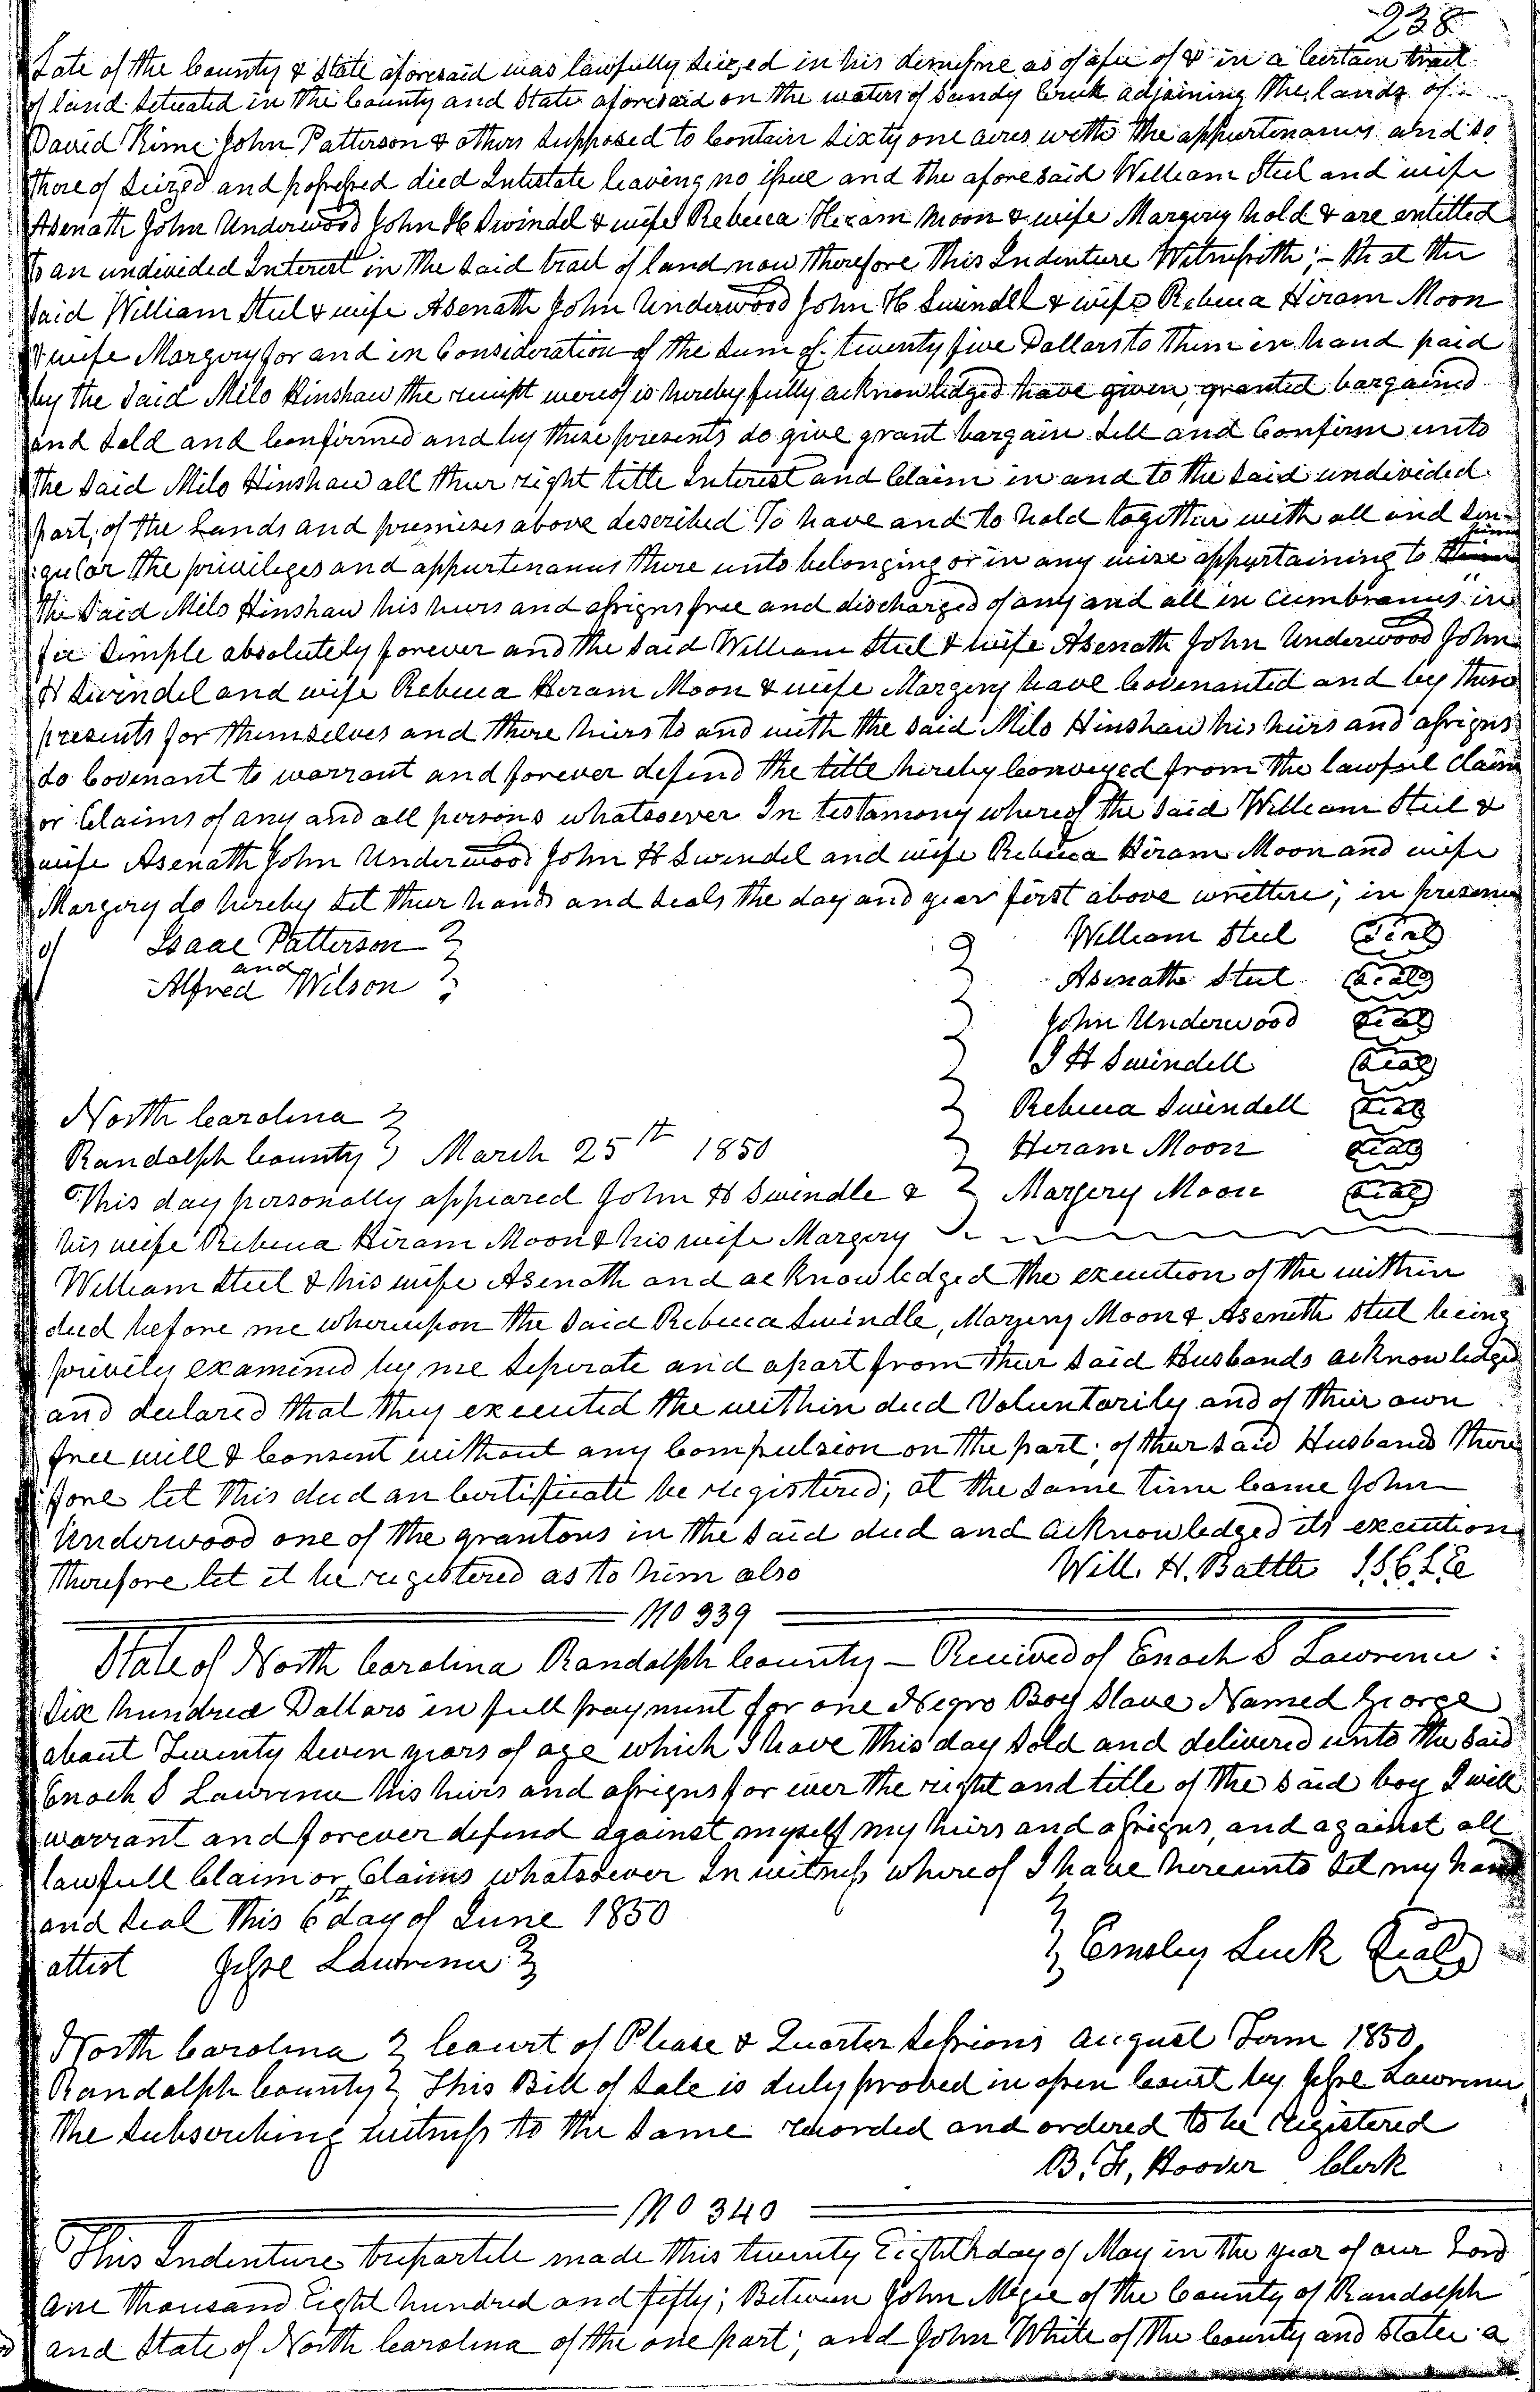 238
Late of the County & State aforesaid was lawfully Seized in his demesne as of a fee of & in a Certain tract
of land Setuated in the County and State aforesaid on the waters of Sandy Creek adjoining the lands of
David Kime John Patterson & others Supposed to Contain Sixty one acres with the appurtenances and so
thereof Seized and possessed died Intestate leaving no issue and the aforesaid William Steel and wife
Asenath John Underwood John H Swindel & wife Rebecca Hiram Moon & wife Margery hold & are entitled
to an undivided Interest in the Said tract of land now therefore This Indenture Witnesseth; - that the
Said William Steel & wife Asenath John Underwood John H Swindell & wife Rebecca Hiram Moon
& wife Margery for and in Consideration of the Sum of twenty five Dollars to them in hand paid
by the Said Milo Hinshaw the receipt wereof is hereby fully acknowledged have given, granted bargained
and Sold and Confirmed and by these presents do give grant bargain Sell and Confirm unto
the Said Milo Hinshaw all thur right title Interest and Claim in and to the Said undivided
part, of the Lands and premises above described To have and to hold together with all and Sin-
gular the privileges and appurtenances there unto belonging or in any wise appurtaining to
the Said Milo Hinshaw his heirs and assigns free and discharged of any and all in cumbrances in
fee Simple absolutely forever and the Said William Steel & wife Asenath John Underwood John
H Swindel and wife Rebecca Hiram Moon & wife Margery have Covenanted and by these
presents for themselves and there heirs to and with the Said Milo Hinshaw his heirs and assigns
do Covenant to warrant and forever defend the title hereby Conveyed from the lawful Claim
or Claims of any and all persons whatsoever In testamony whereof the Said William Steel &
wife Asenath John Underwood John H Swindel and wife Rebecca Hiram Moon and wife
Margery do hereby Set thur hands and Seals the day and year first above written; in presence
of Isaac Patterson
and
Alfred Wilson
William Steel Seal
Asenath Steel Seal
John Underwood Seal
J H Swindell Seal
Rebecca Swindell Seal
Hiram Moon Seal
Margery Moon Seal
North Carolina
Randolph County March 25th 1850
This day personally appeared John H Swindle &
his wife Rebecca Hiram Moon & his wife Margery
William Steel & his wife Asenath and acknowledged the execution of the within
deed before me whereupon the Said Rebecca Swindle, Margery Moon & Aseneth Steel being
privily examined by me Seperate and apart from thur Said Husbands acknowledged
and declared that they executed the within deed Voluntarily and of their own
free will & Consent without any Compulsion on the part, of thur Said Husbands There
fore let this deed an Certificate be registered; at the Same time Came John
Underwood one of the grantors in the Said deed and acknowledged its execution
Therefore let it be registered as to him also Will. H. Battle
No 339
State of North Carolina Randolph County - Received of Enoch S Lawrence :
Six hundred Dollars in full payment for one Negro Boy Slave Named George
about Twenty Seven years of age which I have this day Sold and delivered unto the Said
Enoch S Lawrence his heirs and assigns for ever the right and title of the Said boy I will
warrant and forever defend against myself my heirs and assigns, and against all
lawfull Claim or Claims whatsoever In witness whereof I have hereunto Set my hand
and Seal this 6th day of June 1850
attest Jesse Lawrence
Emsley Luck Seal
North Carolina Court of Please & Quarter Sessions August Term 1850
Randolph County This Bill of Sale is duly proved in open Court by Jesse Lawrence
the Subscribing witness to the Same recorded and ordered to be registered
B. F. Hoover Clerk
No 340
This Indenture tripartite made this twenty Eighth day of May in the year of our Lord
one thousand Eight hundred and fifty; Between John McGee of the County of Randolph
and State of North Carolina of the one part; and John White of the County and State a